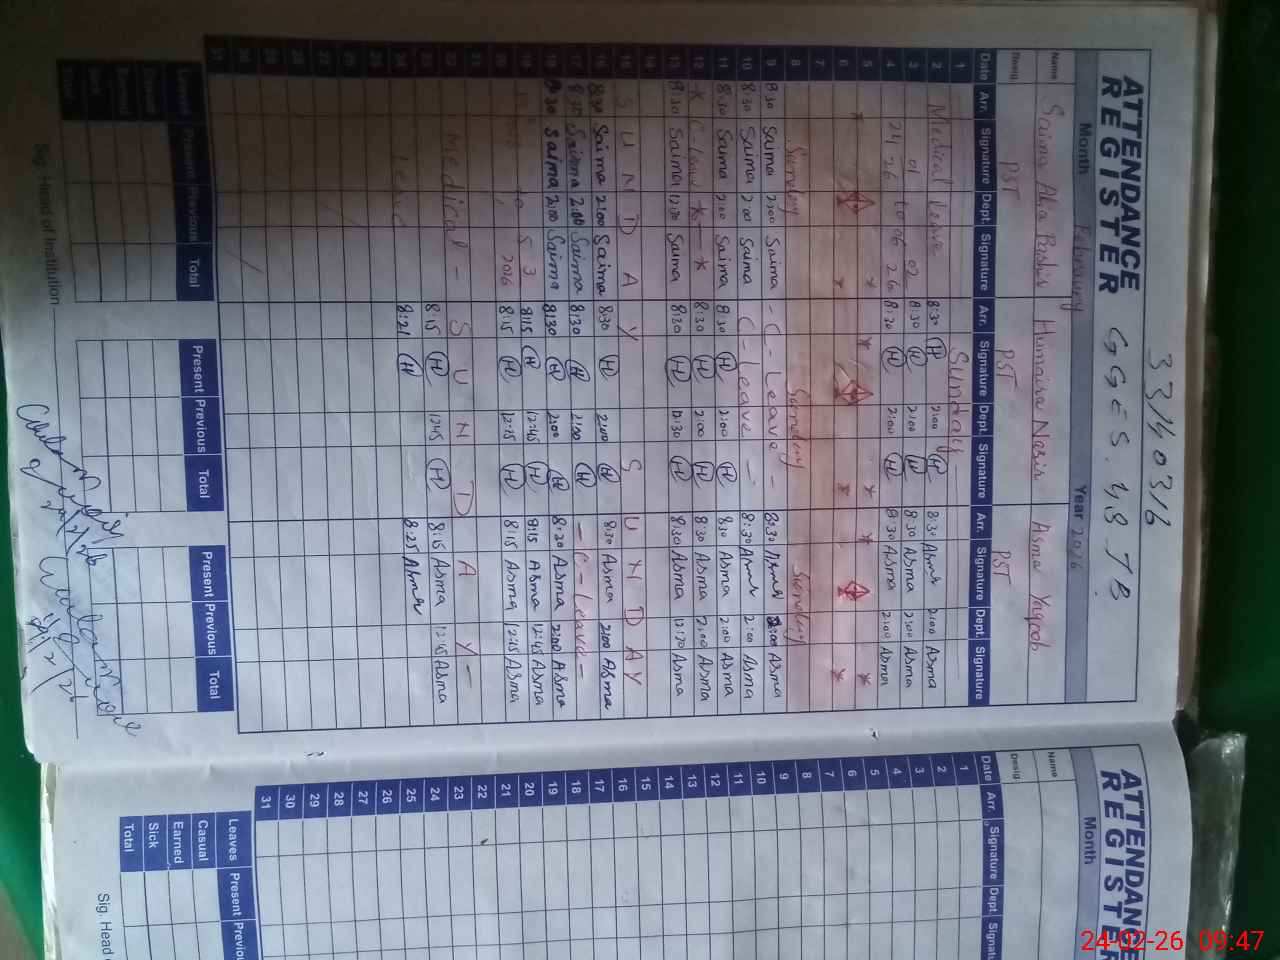 33140316
ATTENDANCE REGISTER GGES. 49 TB
Month February Year 2026
Name Saima Humaira Nasir Asma Yaqoob
Desig. PST PST PST
Date Arr. Signature Dept. Signature Arr. Signature Dept. Signature Arr. Signature Dept. Signature
1 Sunday
2 Medical Leave 8:30 H 2:00 H 8:30 Asma 2:00 Asma
3 01 02 8:30 H 2:00 H 8:30 Asma 2:00 Asma
4 24 26 to 06 26 8:30 H 2:00 H 8:30 Asma 2:00 Asma
5
6
7
8 Sunday Sunday Sunday
9 8:30 Saima 2:00 Saima - C - Leave - 8:30 Asma 2:00 Asma
10 8:30 Saima 2:00 Saima C - Leave - 8:30 Asma 2:00 Asma
11 8:30 Saima 2:00 Saima 8:30 H 2:00 H 8:30 Asma 2:00 Asma
12 C - Leave 8:30 H 2:00 H 8:30 Asma 2:00 Asma
13 8:30 Saima 12:30 Saima 8:30 H 12:30 H 8:30 Asma 12:30 Asma
14
15 S U N D A Y S U N D A Y
16 8:30 Saima 2:00 Saima 8:30 H 2:00 H 8:30 Asma 2:00 Asma
17 8:30 Saima 2:00 Saima 8:30 H 2:00 H - C - Leave -
18 8:30 Saima 2:00 Saima 8:30 H 2:00 H 8:30 Asma 2:00 Asma
19 to 5 3 8:15 H 12:45 H 8:15 Asma 12:45 Asma
20 2026 8:15 H 12:15 H 8:15 Asma 12:15 Asma
21
22 Medical - S U N D A Y -
23 8:15 H 12:45 H 8:15 Asma 12:45 Asma
24 Leave 8:21 H 8:25 Asma
25
26
27
28
29
30
31
Leaves Present Previous Total Present Previous Total Present Previous Total
Casual
Sick
Earned
Total
Sig. Head of Institution
24/2/26
ATTENDANCE REGISTER
Month
Name
Desig.
Date Arr. Signature Dept.
1
2
3
4
5
6
7
8
9
10
11
12
13
14
15
16
17
18
19
20
21
22
23
24
25
26
27
28
29
30
31
Leaves Present
Casual
Earned
Sick
Total
Sig. Head
24-02-26 09:47